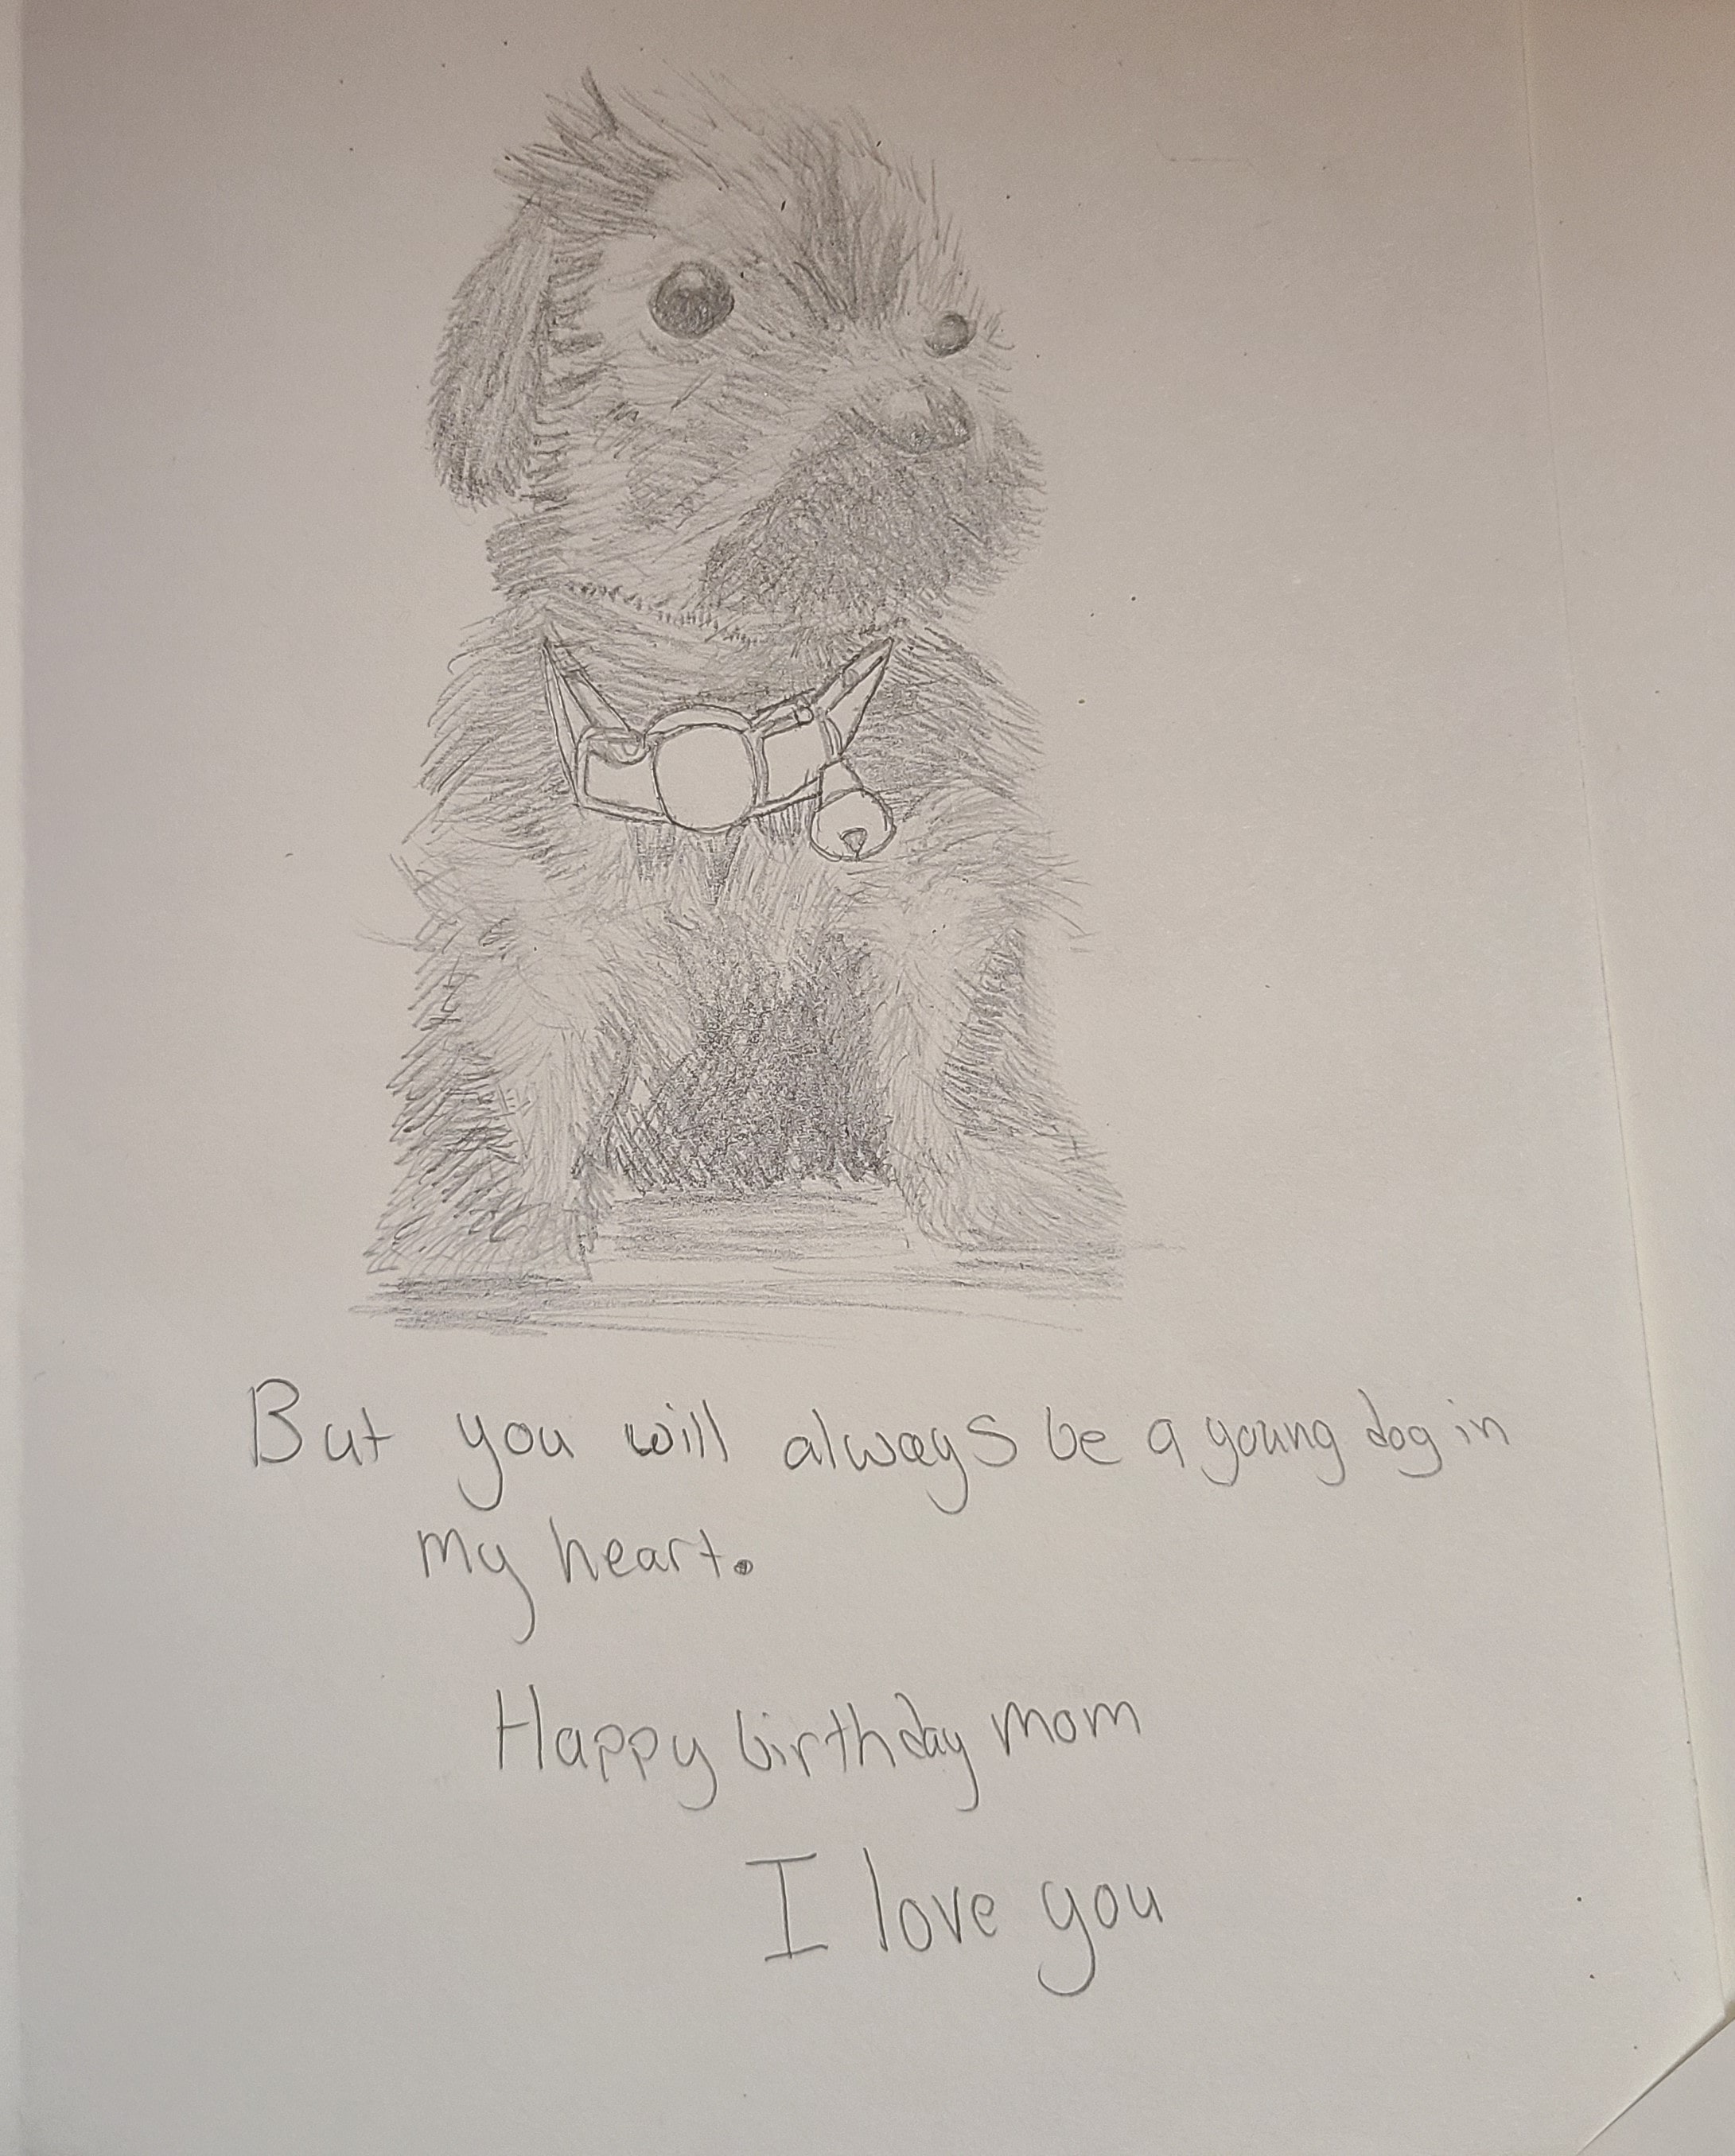 But you will always be a young dog in
my heart.
Happy birthday mom
I love you